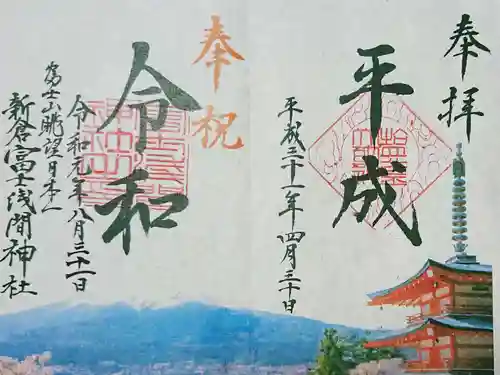 奉拝
平成
平成三十一年四月三十日
奉祝
令和
令和元年八月三十一日
富士山眺望日本一
新倉富士浅間神社